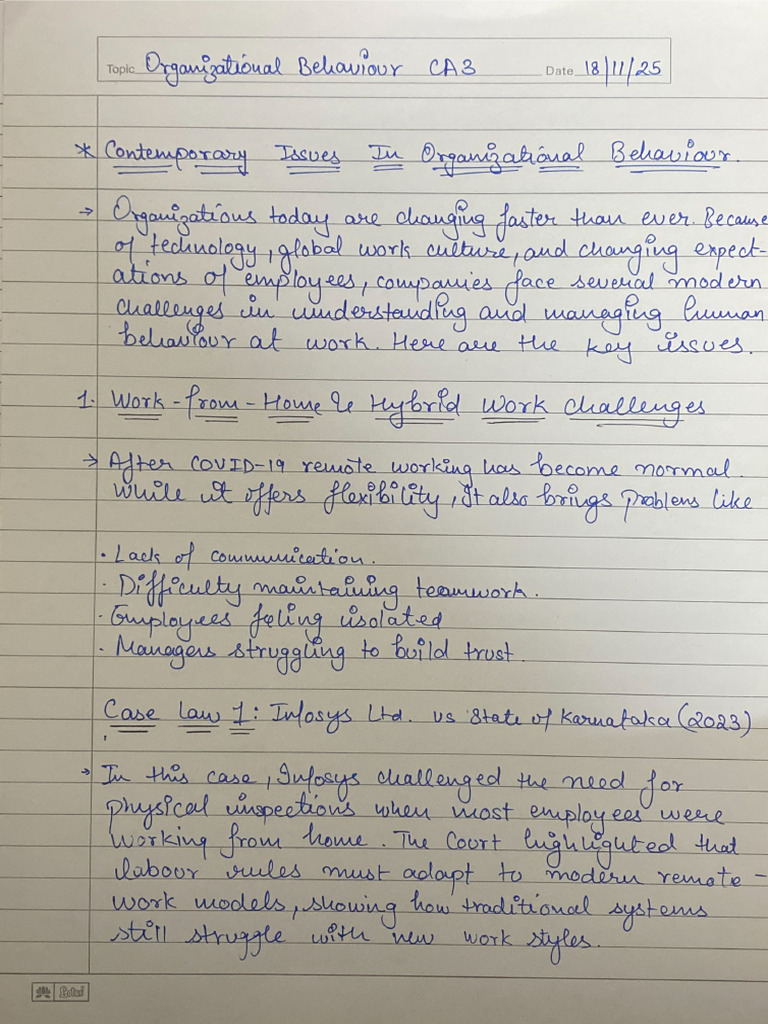 Topic Organizational Behaviour CA3 Date 18/11/25
* Contemporary Issues In Organizational Behaviour.
→ Organizations today are changing faster than ever. Because
of technology, global work culture, and changing expect-
ations of employees, companies face several modern
challenges in understanding and managing human
behaviour at work. Here are the key issues.
1. Work-from-Home & Hybrid Work Challenges
→ After COVID-19 remote working has become normal.
While it offers flexibility, It also brings problems like
· Lack of communication.
· Difficulty maintaining teamwork.
· Employees feling isolated
· Managers struggling to build trust.
Case Law 1: Infosys Ltd. vs State of Karnataka (2023)
→ In this case, Infosys challenged the need for
physical inspections when most employees were
working from home. The Court highlighted that
labour rules must adapt to modern remote-
work models, showing how traditional systems
still struggle with new work styles.